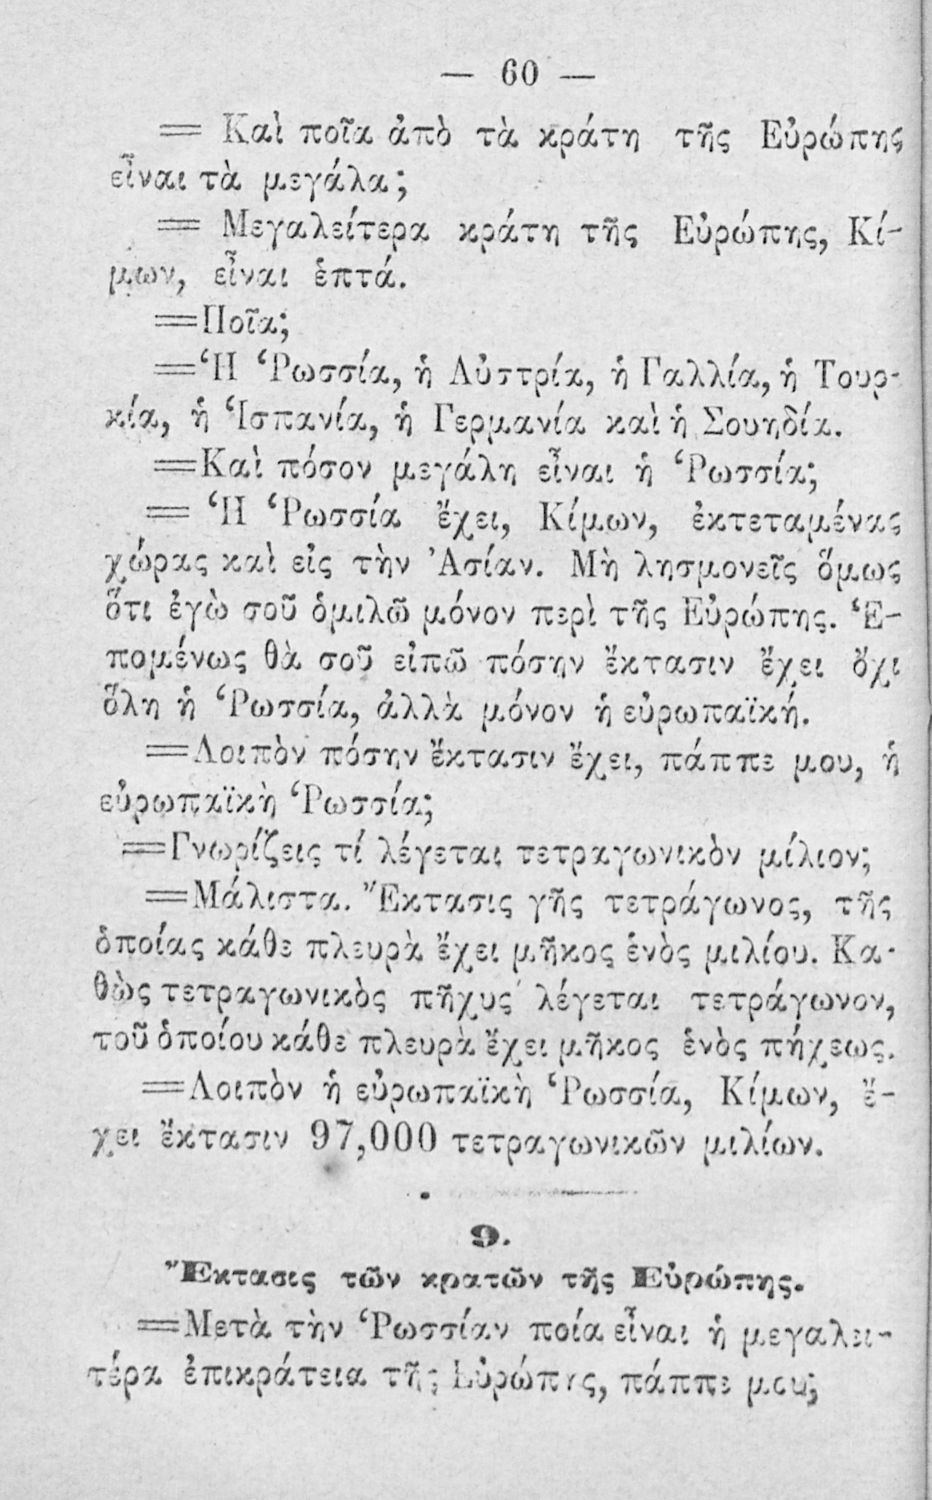 — 60 —
= Καὶ ποῖα ἀπὸ τὰ κράτη τῆς Εὐρώπης
εἶναι τὰ μεγάλα;
= Μεγαλείτερα κράτη τῆς Εὐρώπης, Κί-
μων, εἶναι ἑπτά.
=Ποῖα;
=Ἡ Ῥωσσία, ἡ Αὐστρία, ἡ Γαλλία, ἡ Τουρ-
κία, ἡ Ἱσπανία, ἡ Γερμανία καὶ ἡ Σουηδία.
=Καὶ πόσον μεγάλη εἶναι ἡ Ῥωσσία;
= Ἡ Ῥωσσία ἔχει, Κίμων, ἐκτεταμένας
χώρας καὶ εἰς τὴν Ἀσίαν. Μὴ λησμονεῖς ὅμως
ὅτι ἐγὼ σοῦ ὁμιλῶ μόνον περὶ τῆς Εὐρώπης. Ἑ-
πομένως θὰ σοῦ εἰπῶ πόσην ἔκτασιν ἔχει ὄχι
ὅλη ἡ Ῥωσσία, ἀλλὰ μόνον ἡ εὐρωπαϊκή.
=Λοιπὸν πόσην ἔκτασιν ἔχει, πάππε μου, ἡ
εὐρωπαϊκὴ Ῥωσσία;
=Γνωρίζεις τί λέγεται τετραγωνικὸν μίλιον;
=Μάλιστα. Ἔκτασις γῆς τετράγωνος, τῆς
ὁποίας κάθε πλευρὰ ἔχει μῆκος ἑνὸς μιλίου. Κα-
θὼς τετραγωνικὸς πῆχυς λέγεται τετράγωνον,
τοῦ ὁποίου κάθε πλευρὰ ἔχει μῆκος ἑνὸς πήχεως.
=Λοιπὸν ἡ εὐρωπαϊκὴ Ῥωσσία, Κίμων, ἔ-
χει ἔκτασιν 97,000 τετραγωνικῶν μιλίων.
9.
Ἔκτασις τῶν κρατῶν τῆς Εὐρώπης.
=Μετὰ τὴν Ῥωσσίαν ποία εἶναι ἡ μεγαλει-
τέρα ἐπικράτεια τῆς Εὐρώπης, πάππε μου;